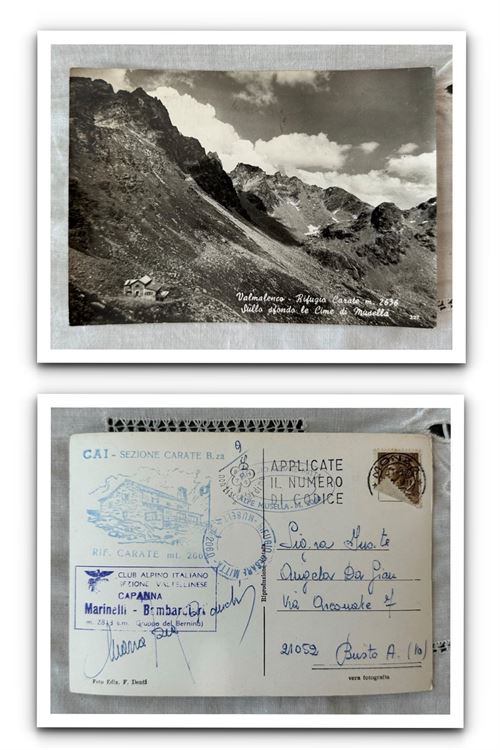 Valmalenco - Rifugio Carate m. 2636
Sullo sfondo le Cime di Musella
327
CAI - SEZIONE CARATE B.za
RIF. CARATE mt.
CLUB ALPINO ITALIANO
SEZIONE VALTELLINESE
CAPANNA
Marinelli - Bombardieri
m. 2813 s.m. (Gruppo del Bernina)
Foto Ediz. F. Denti
9
ALPE MUSELLA - M.
APPLICATE
IL NUMERO
DI CODICE
Angela Da Gian
Via Arconate 7
21052 Busto A. (Va)
vera fotografia